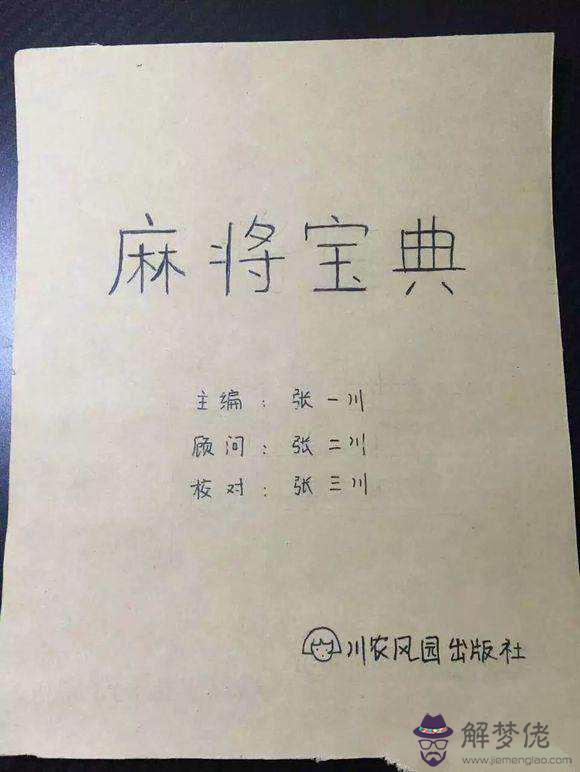 麻将宝典
主编：张一川
顾问：张二川
校对：张三川
川农风园出版社
解梦佬
www.jiemenglao.com